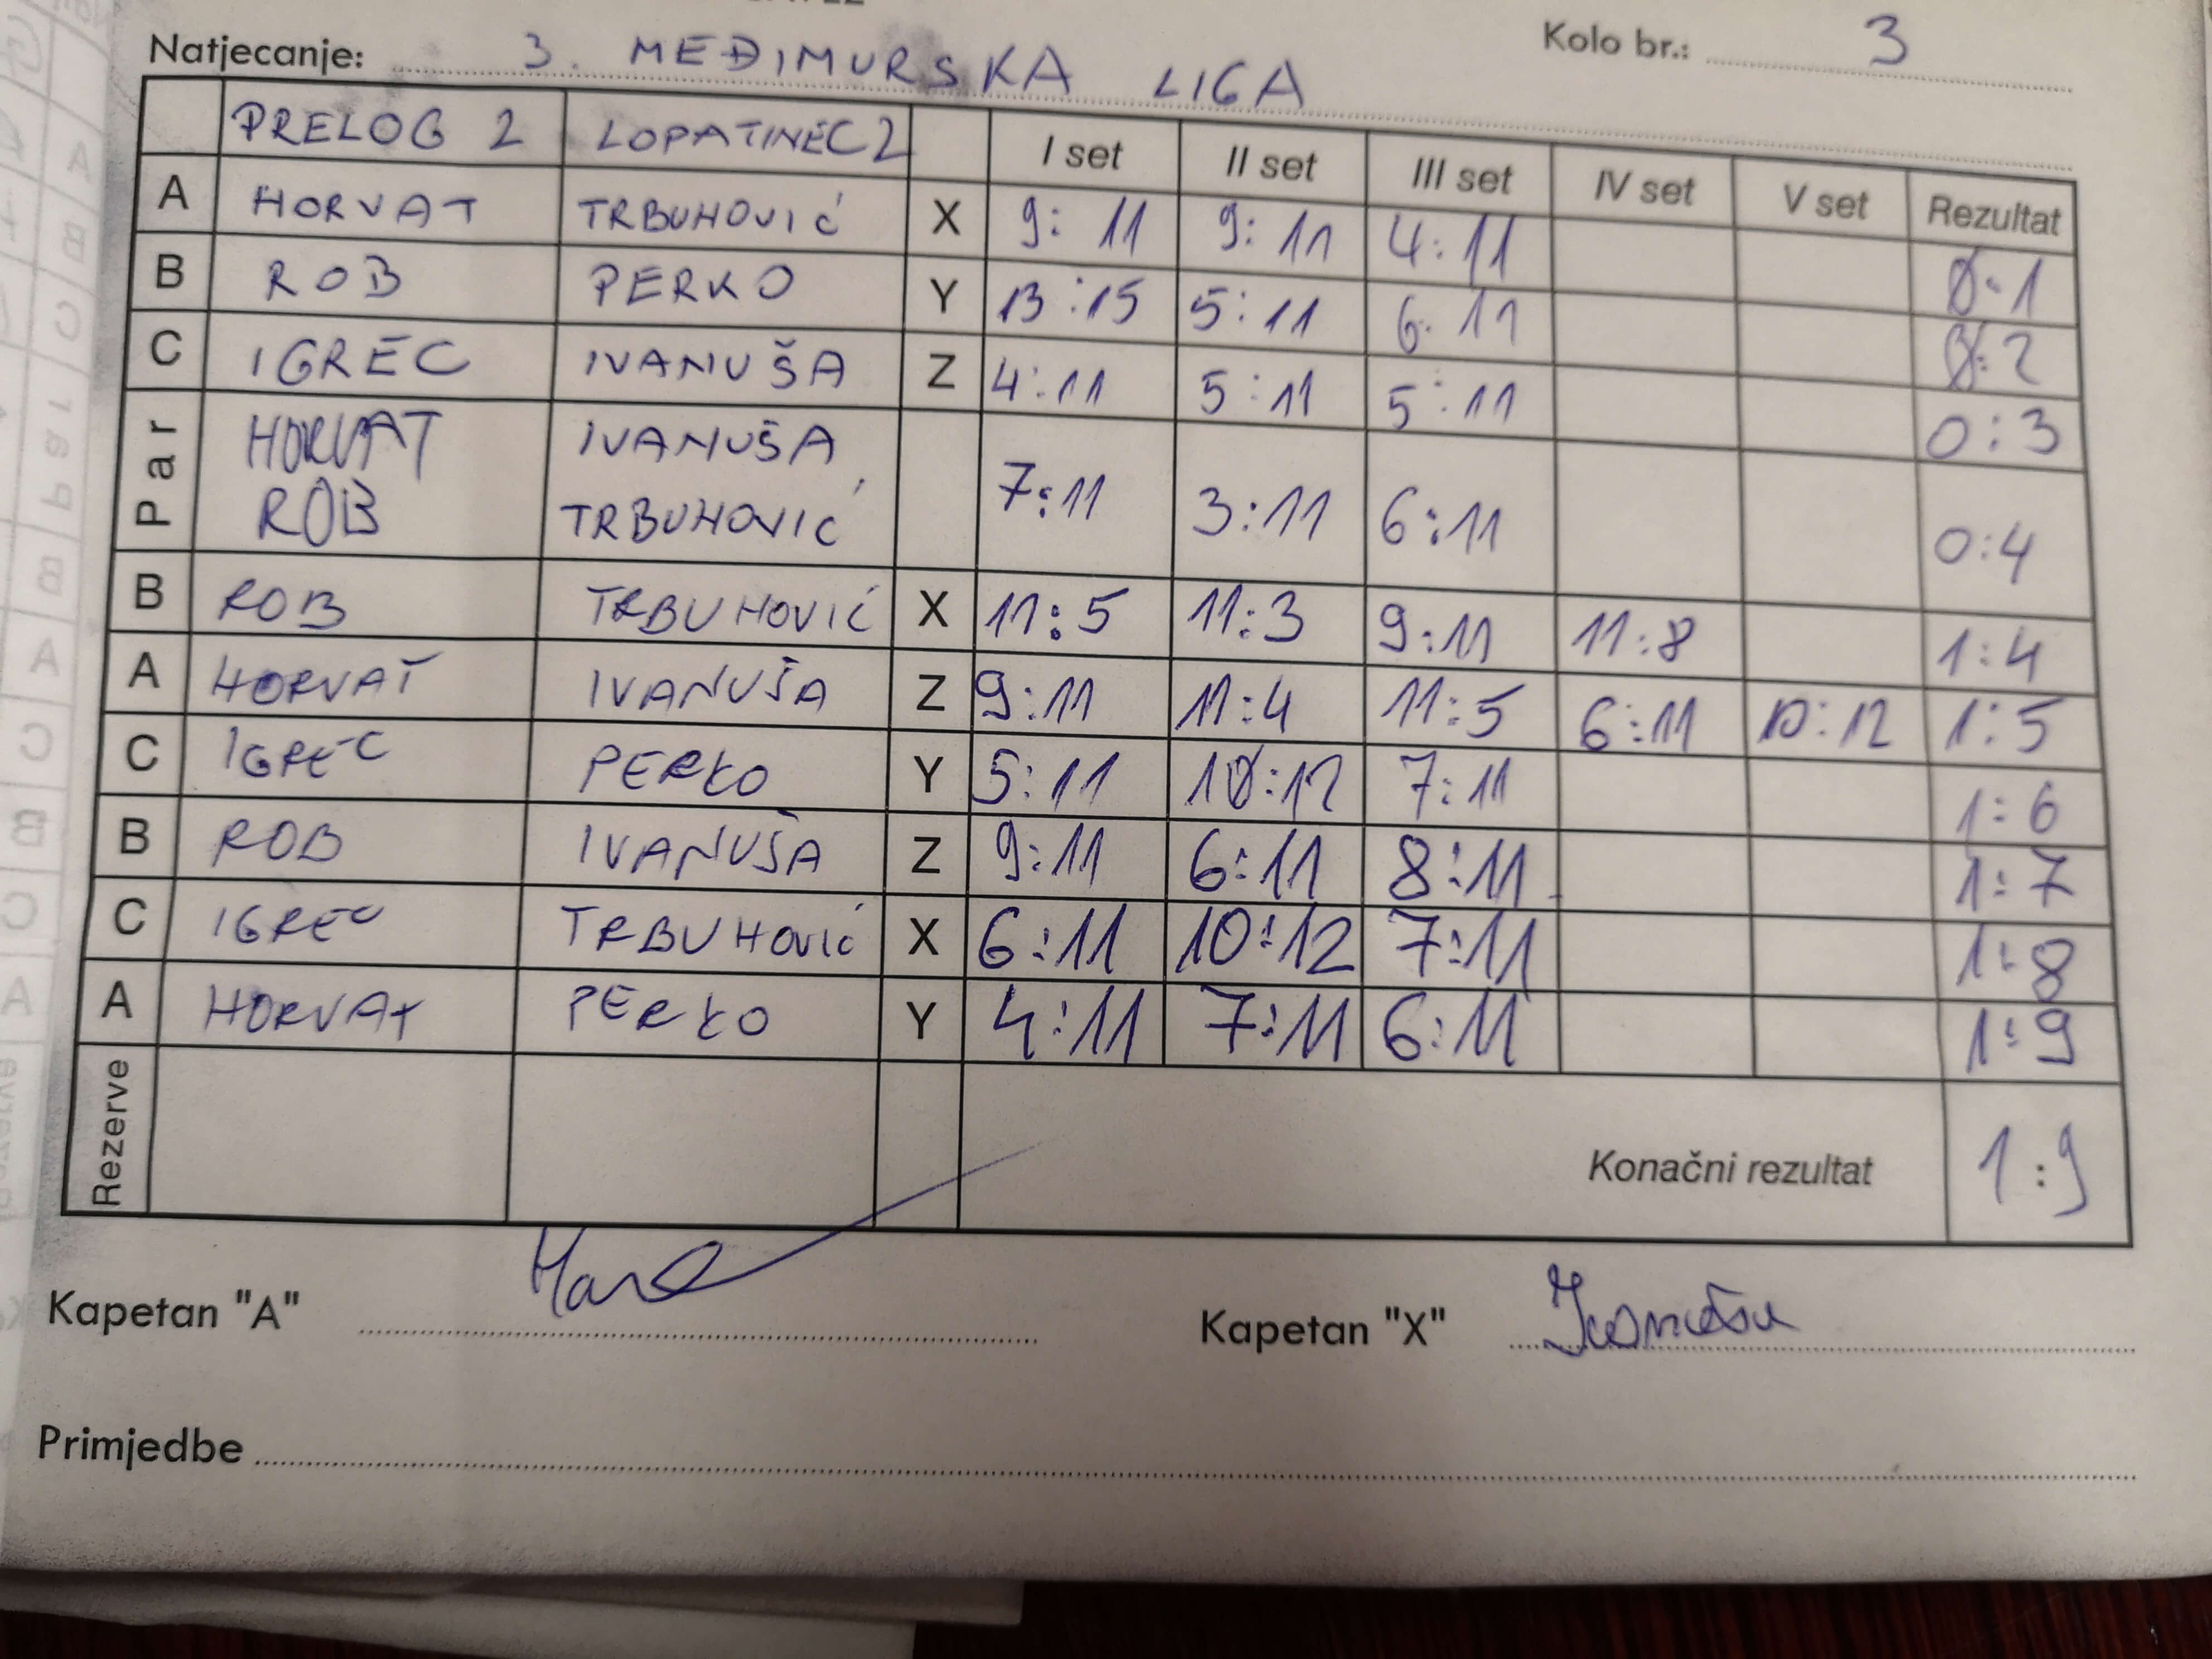 Natjecanje: 3. MEĐIMURSKA LIGA Kolo br.: 3
PRELOG 2 LOPATINEC 2 I set II set III set IV set V set Rezultat
A HORVAT TRBUHOVIĆ X 9:11 9:11 4:11 0:1
B ROB PERKO Y 13:15 5:11 6:11 0:2
C IGREC IVANUŠA Z 4:11 5:11 5:11 0:3
Par HORVAT ROB IVANUŠA TRBUHOVIĆ 7:11 3:11 6:11 0:4
B ROB TRBUHOVIĆ X 11:5 11:3 9:11 11:8 1:4
A HORVAT IVANUŠA Z 9:11 11:4 11:5 6:11 10:12 1:5
C IGREC PERKO Y 5:11 10:12 7:11 1:6
B ROB IVANUŠA Z 9:11 6:11 8:11 1:7
C IGREC TRBUHOVIĆ X 6:11 10:12 7:11 1:8
A HORVAT PERKO Y 4:11 7:11 6:11 1:9
Rezerve Konačni rezultat 1:9
Kapetan "A" Kapetan "X" Ivanuša
Primjedbe